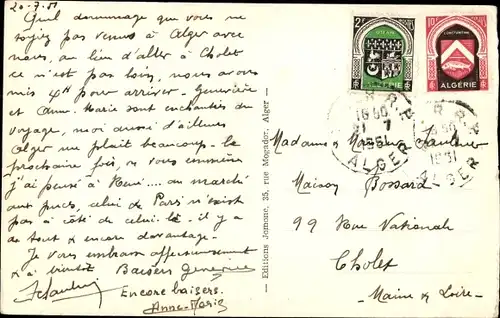 20-7-51
Quel dommage que vous ne
soyez pas venus à Alger avec
nous, au lieu d'aller à Cholet
ce n'est pas loin, nous avons
mis 4H pour arriver. Geneviève
et Anne-Marie sont enchantées du
voyage, moi aussi d'ailleurs
Alger me plait beaucoup. La
prochaine fois, on vous emmène
j'ai pensé à René ... au marché
aux puces, celui de Paris n'existe
pas à côté de celui-là. il y a
de tout & encore davantage.
Je vous embrasse affectueusement
& à bientôt Baisers Geneviève
Encore baisers.
Anne-Marie
Editions Jomone, 35, rue Mogador, Alger
2F
ORAN
ALGÉRIE
10F
CONSTANTINE
ALGÉRIE
ALGER
ALGER
Madame & Monsieur
Maison Bossard
99 Rue Nationale
Cholet
Maine & Loire